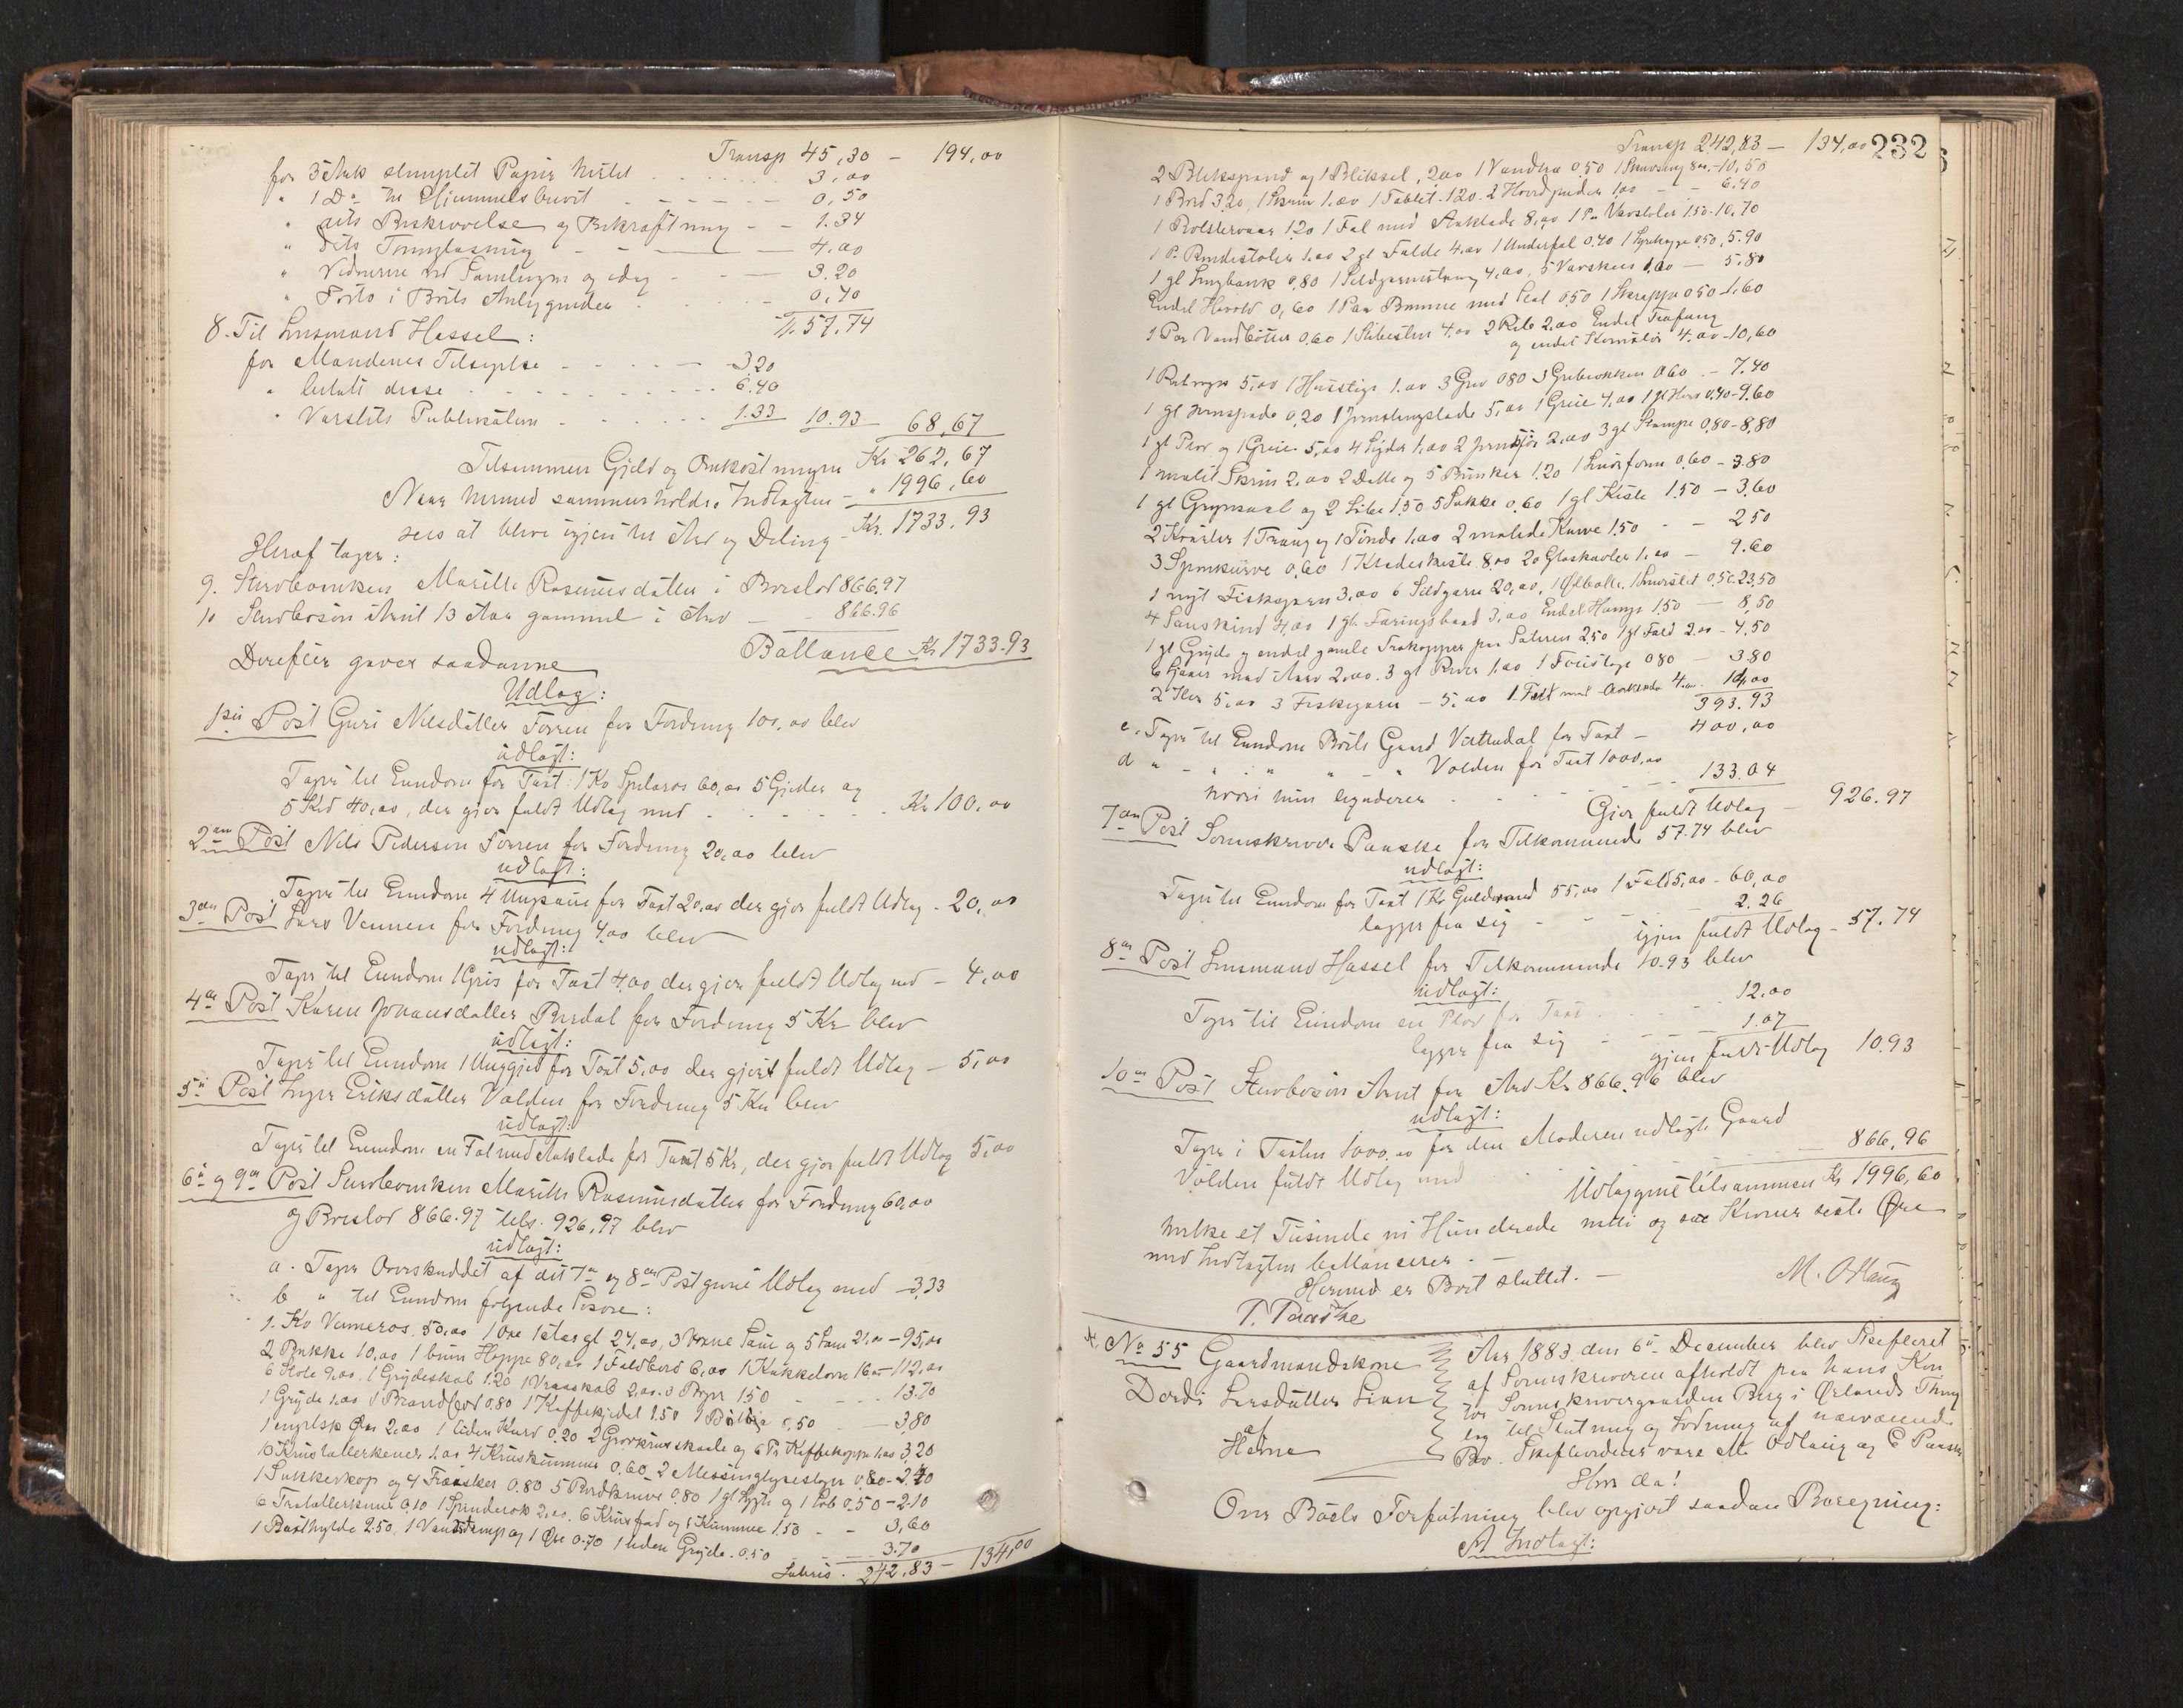 Transp 45,30 - 194,00
for 3 Ark stemplet Papir hertil 3,00
" 1 Do til Hjemmelsbrevit 0,50
" dets Beskrivelse og Bekræftning - - 1.34
" Dets Thinglæsning - - 4.00
" Vidnerne ved Samlingen og idag - - 3.20
" Porto i Boets Anliggender - 0,40
Tr. 57,74
8. Til Lensmand Hassel:
for Mandenes Tilsigelse - - - - 3,20
" betalt disse - - - - 6.40
" Varslets Publikation - - - - 1.33 10.93 68,67
Tilsammen Gjeld og Omkostningen Kr 262,67
Naar hermed sammenholdes Indtægten - " 1996,60
sees at blive igjen til Arv og Deling - Kr. 1733.93
Heraf tager:
9. Stervboenken Marith Rasmusdatter i Broslod 866.97
10 Stervbosøn Arnt 13 Aar gammel i Arv - 866.96
Ballance Kr 1733.93
Derefter gaves saadanne
Udlæg:
1ste Post Guri Nilsdatter Forren for Fordring 100,00 blev
udlagt:
Tages til Eiendom for Taxt: 1 Ko Spilaros 60,00 5 Gjeder og
5 Kid 40,00, der gjør fuldt Udlæg med - - - - Kr 100,00
2den Post Nils Pedersen Forren for Fordring 20,00 blev
udlagt:
Tages til Eiendom 4 Ungsaue for Taxt 20,00 der gjør fuldt Udlæg - 20,00
3die Post Lars Vennen for Fordring 4,00 blev
udlagt:
Tages til Eiendom 1 Gris for Taxt 4,00 der gjør fuldt Udlæg med - 4,00
4de Post Karen Johansdatter Rødal for Fordring 5 Kr blev
udlagt:
Tages til Eiendom 1 Unggjed for Taxt 5,00 der gjør fuldt Udlæg - 5,00
5te Post Inger Eriksdatter Valden for Fordring 5 Kr blev
udlagt:
Tages til Eiendom en Fæl med Aaklæde for Taxt 5 Kr, der gjør fuldt Udlæg 5,00
6te og 9de Post Stervboenken Marith Rasmusdatter for Fordring 60,00
og Broslod 866.97 tils. 926,97 blev
udlagt:
a. Tager Overskuddet af det 7de og 8de Post givne Udlæg med - 3,33
b " til Eiendom følgende Løsøre:
1 Ko Vameros. 50,00 1 Oxe 1 Aars gl 24,00, 3 voxne Saue og 5 Lam 21.00 - 95,00
2 Bukke 10,00 1 brun Hoppe 80,00 1 Foldebord 6,00 1 Kakkelovn 16.00 - 112.00
6 Stole 9.00. 1 Grydeskab 1.20 1 Vraaskab 2.00. 3 1.50 - 13.70
1 Gryde 1.00 1 0.80 1 Kaffekjedel 1.50 1 0,50 - 3,80
1 engelsk Øx 2.00 1 liden Kurv 0.20 2 og 6 Pr Kaffekopper 1.00 3,20
10 Krustallerkener 1.00 4 Kruskummer 0.60 2 Messinglysestager 0,80 - 2,40
1 Sukkerkop og 4 0.80 5 Bordknive 0,80 1 gl Lygte og 1 0.50 - 2.10
6 Trætallerkener 0.10 1 Spinderok 2.00. 6 Krusfad og 1 Kumme 1.50 - - 3,60
1 2.50, 1 og 1 Øx 0.70 1 liden Gryde 0.50 - 3.70
Lateris. 242,83 - 134,00
232
Transp 242,83 - 134,00
2 Blikspand og 1 Blikkel 2.00 1 0.50 1 8.00 - 10,50
1 Bord 3.20, 1 Skrin 1.00 1 Tablet 1.20. 2 Hovedpuder 1.00 - - 6.40
1 Bolstervaar 1.20 1 Fæl med Aaklæde 8,00 1 Pr Vævstoler 1.50 - 10,70
1 Pr Rendestoler 1.00 2 gl Fælde 4.00 1 Underfæl 0.40 1 0.50, 5.90
1 gl Sengbænk 0,80 1 4,00, 5 Vævskeer 1,00 - 5.80
Endel Hovold 0,60 1 Par med Seal 0.50 1 Skreppe 0.50 - 1.60
1 Par Vandbøtter 0,60 1 Slibesten 4.00 2 Reb 2.00 Endel Træfang
og endel 4.00 - 10,60
1 5,00 1 Husstige 1.00 3 Grev 0.80 3 0.60 - 7.40
1 gl Jernspade 0,20 1 5,00 1 Greie 4,00 1 gl 0.40 - 9.60
1 gl Plov og 1 Greie 5,00 4 Sigder 1.00 2 2.00 3 gl 0.80 - 8,80
1 malet Skrin 2.00 2 Dalle og 5 1.20 1 0.60 - 3.80
1 gl og 2 1.50 5 Sække 0.60 1 gl Kiste 1.50 - 3.60
2 1 Traug og 1 Tønde 1.00 2 malede Kurve 1.50 - - 2.50
3 Spønkurve 0.60 1 Klædeskiste 8.00 20 Glaskavler 1.00 - 9.60
1 nyt Fiskegarn 3,00 6 Sildgarn 20,00, 1 Ølbolle 0,50 23,50
4 Saueskind 4,00 1 gl Færingsbaad 3,00 Endel Hamp 1.50 - 8,50
1 gl Gryde og endel gamle Trækopper paa Sæteren 2.50 1 gl Fæld 2.00 - 4,50
6 med 2.00. 3 gl River 1.00 1 0.80 - 3.80
2 5.00 3 Fiskegarn - 5.00 1 Fæll med Aaklæde 4.00 14.00
393.93
c. Tages til Eiendom Boets Gaard Vættadal for Taxt - 400,00
d " - " - " - " Valden for Taxt 1000,00
hvori hun 133.04
Gjør fuldt Udlæg - 926.97
7de Post Sorenskriver Paaske for Tilkommende 57.74 blev
udlagt:
Tages til Eiendom for Taxt 1 Ko Guldrand 55,00 1 Fæld 5,00 - 60,00
lægger fra sig - - 2.26
igjen fuldt Udlæg - 57.74
8de Post Lensmand Hassel for Tilkommende 10.93 blev
udlagt:
Tages til Eiendom en Plov for Taxt 12.00
lægger fra sig - - 1.07
igjen fuldt Udlæg 10.93
10de Post Stervbosøn Arnt for Arv Kr 866.96 blev
udlagt:
Tages i Taxten 1000,00 for den Moderen udlagte Gaard
Valden fuldt Udlæg med 866,96
Udlæggene tilsammen Kr 1996,60
hvilke et Tusinde ni Hundrede nitti og sex Kroner sexti Øre
med Indtægten ballancerer. -
Hermed er Boet sluttet. -
M. Odlaug
P. Paaske
No 55 Gaardmandskone
Dordi Larsdatter Lian
af
Hevne
Aar 1883 den 6te December blev Skifteret
af Sorenskriveren afholdt paa hans Kon
tor Sorenskrivergaarden Berg i Ørlands Thing
lag til Slutning og Lodning af nærværende
Bo. Skiftevidner vare M. Odlaug og E Paaske
Hvor da!
Over Boets Forfatning blev opgjort saadan Beregning:
A Indtægt: